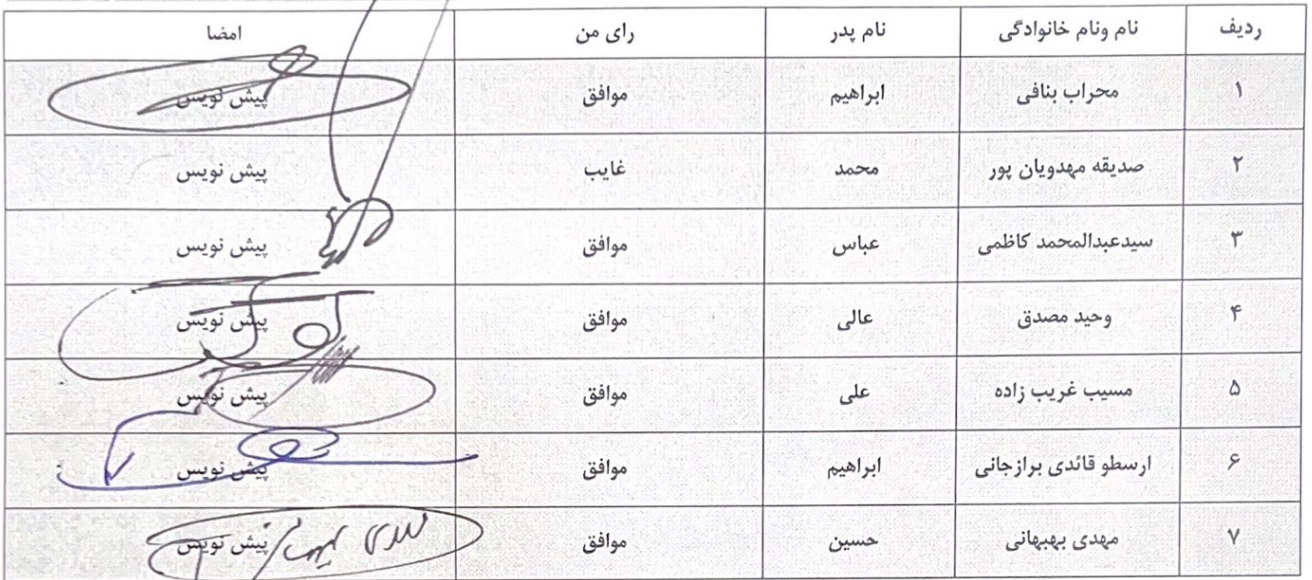 ردیف نام ونام خانوادگی نام پدر رای من امضا
۱ محراب بنافی ابراهیم موافق پیش نویس
۲ صدیقه مهدویان پور محمد غایب پیش نویس
۳ سیدعبدالمحمد کاظمی عباس موافق پیش نویس
۴ وحید مصدق عالی موافق پیش نویس
۵ مسیب غریب زاده علی موافق پیش نویس
۶ ارسطو قائدی برازجانی ابراهیم موافق پیش نویس
۷ مهدی بهبهانی حسین موافق پیش نویس